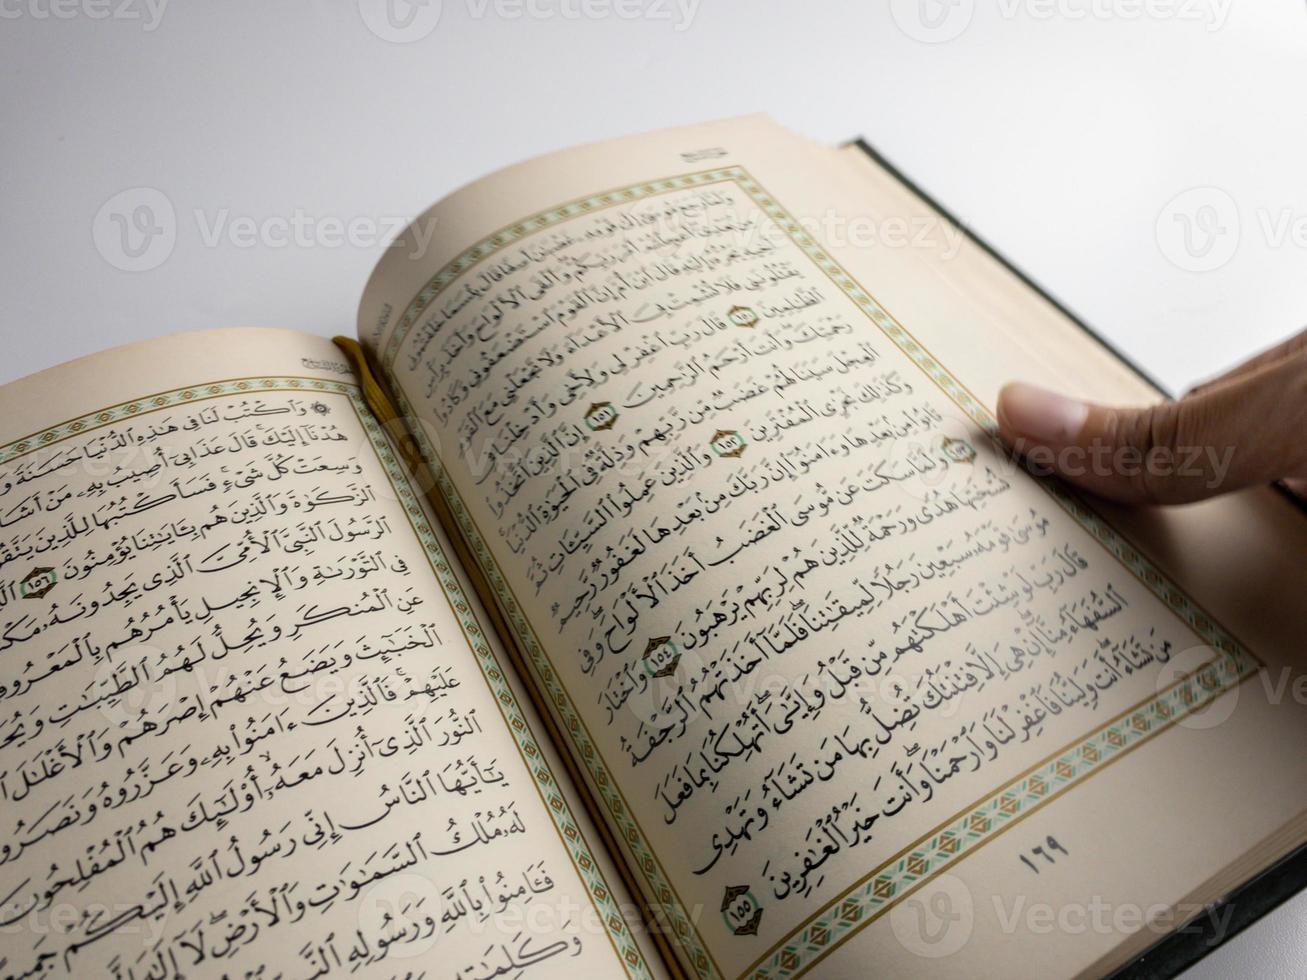 وَلَمَّا رَجَعَ مُوسَىٰٓ إِلَىٰ قَوْمِهِۦ غَضْبَٰنَ أَسِفًا قَالَ بِئْسَمَا خَلَفْتُمُونِي
مِنۢ بَعْدِيٓ أَعَجِلْتُمْ أَمْرَ رَبِّكُمْ وَأَلْقَى ٱلْأَلْوَاحَ وَأَخَذَ بِرَأْسِ
أَخِيهِ يَجُرُّهُۥٓ إِلَيْهِ قَالَ ٱبْنَ أُمَّ إِنَّ ٱلْقَوْمَ ٱسْتَضْعَفُونِي وَكَادُوا۟
يَقْتُلُونَنِي فَلَا تُشْمِتْ بِيَ ٱلْأَعْدَآءَ وَلَا تَجْعَلْنِي مَعَ ٱلْقَوْمِ
ٱلظَّٰلِمِينَ ١٥٠ قَالَ رَبِّ ٱغْفِرْ لِي وَلِأَخِي وَأَدْخِلْنَا فِي
رَحْمَتِكَ وَأَنتَ أَرْحَمُ ٱلرَّٰحِمِينَ ١٥١ إِنَّ ٱلَّذِينَ ٱتَّخَذُوا۟
ٱلْعِجْلَ سَيَنَالُهُمْ غَضَبٌ مِّن رَّبِّهِمْ وَذِلَّةٌ فِي ٱلْحَيَوٰةِ ٱلدُّنْيَا
وَكَذَٰلِكَ نَجْزِي ٱلْمُفْتَرِينَ ١٥٢ وَٱلَّذِينَ عَمِلُوا۟ ٱلسَّيِّـَٔاتِ ثُمَّ
تَابُوا۟ مِنۢ بَعْدِهَا وَءَامَنُوٓا۟ إِنَّ رَبَّكَ مِنۢ بَعْدِهَا لَغَفُورٌ رَّحِيمٌ
١٥٣ وَلَمَّا سَكَتَ عَن مُّوسَى ٱلْغَضَبُ أَخَذَ ٱلْأَلْوَاحَ وَفِي
نُسْخَتِهَا هُدًى وَرَحْمَةٌ لِّلَّذِينَ هُمْ لِرَبِّهِمْ يَرْهَبُونَ ١٥٤ وَٱخْتَارَ
مُوسَىٰ قَوْمَهُۥ سَبْعِينَ رَجُلًا لِّمِيقَٰتِنَا فَلَمَّآ أَخَذَتْهُمُ ٱلرَّجْفَةُ
قَالَ رَبِّ لَوْ شِئْتَ أَهْلَكْتَهُم مِّن قَبْلُ وَإِيَّٰيَ أَتُهْلِكُنَا بِمَا فَعَلَ
ٱلسُّفَهَآءُ مِنَّآ إِنْ هِيَ إِلَّا فِتْنَتُكَ تُضِلُّ بِهَا مَن تَشَآءُ وَتَهْدِي
مَن تَشَآءُ أَنتَ وَلِيُّنَا فَٱغْفِرْ لَنَا وَٱرْحَمْنَا وَأَنتَ خَيْرُ ٱلْغَٰفِرِينَ ١٥٥
١٦٩
۞ وَٱكْتُبْ لَنَا فِي هَٰذِهِ ٱلدُّنْيَا حَسَنَةً
هُدْنَآ إِلَيْكَ قَالَ عَذَابِيٓ أُصِيبُ بِهِۦ مَنْ أَشَآءُ
وَسِعَتْ كُلَّ شَيْءٍ فَسَأَكْتُبُهَا لِلَّذِينَ يَتَّقُونَ
ٱلزَّكَوٰةَ وَٱلَّذِينَ هُم بِـَٔايَٰتِنَا يُؤْمِنُونَ ١٥٦
ٱلرَّسُولَ ٱلنَّبِيَّ ٱلْأُمِّيَّ ٱلَّذِي يَجِدُونَهُۥ
فِي ٱلتَّوْرَىٰةِ وَٱلْإِنجِيلِ يَأْمُرُهُم بِٱلْمَعْرُوفِ
عَنِ ٱلْمُنكَرِ وَيُحِلُّ لَهُمُ ٱلطَّيِّبَٰتِ
ٱلْخَبَٰٓئِثَ وَيَضَعُ عَنْهُمْ إِصْرَهُمْ وَٱلْأَغْلَٰلَ
عَلَيْهِمْ فَٱلَّذِينَ ءَامَنُوا۟ بِهِۦ وَعَزَّرُوهُ وَنَصَرُوهُ
ٱلنُّورَ ٱلَّذِيٓ أُنزِلَ مَعَهُۥٓ أُو۟لَٰٓئِكَ هُمُ ٱلْمُفْلِحُونَ
يَٰٓأَيُّهَا ٱلنَّاسُ إِنِّي رَسُولُ ٱللَّهِ إِلَيْكُمْ
لَهُۥ مُلْكُ ٱلسَّمَٰوَٰتِ وَٱلْأَرْضِ لَآ إِلَٰهَ
فَـَٔامِنُوا۟ بِٱللَّهِ وَرَسُولِهِ
وَكَلِمَٰتِهِۦ